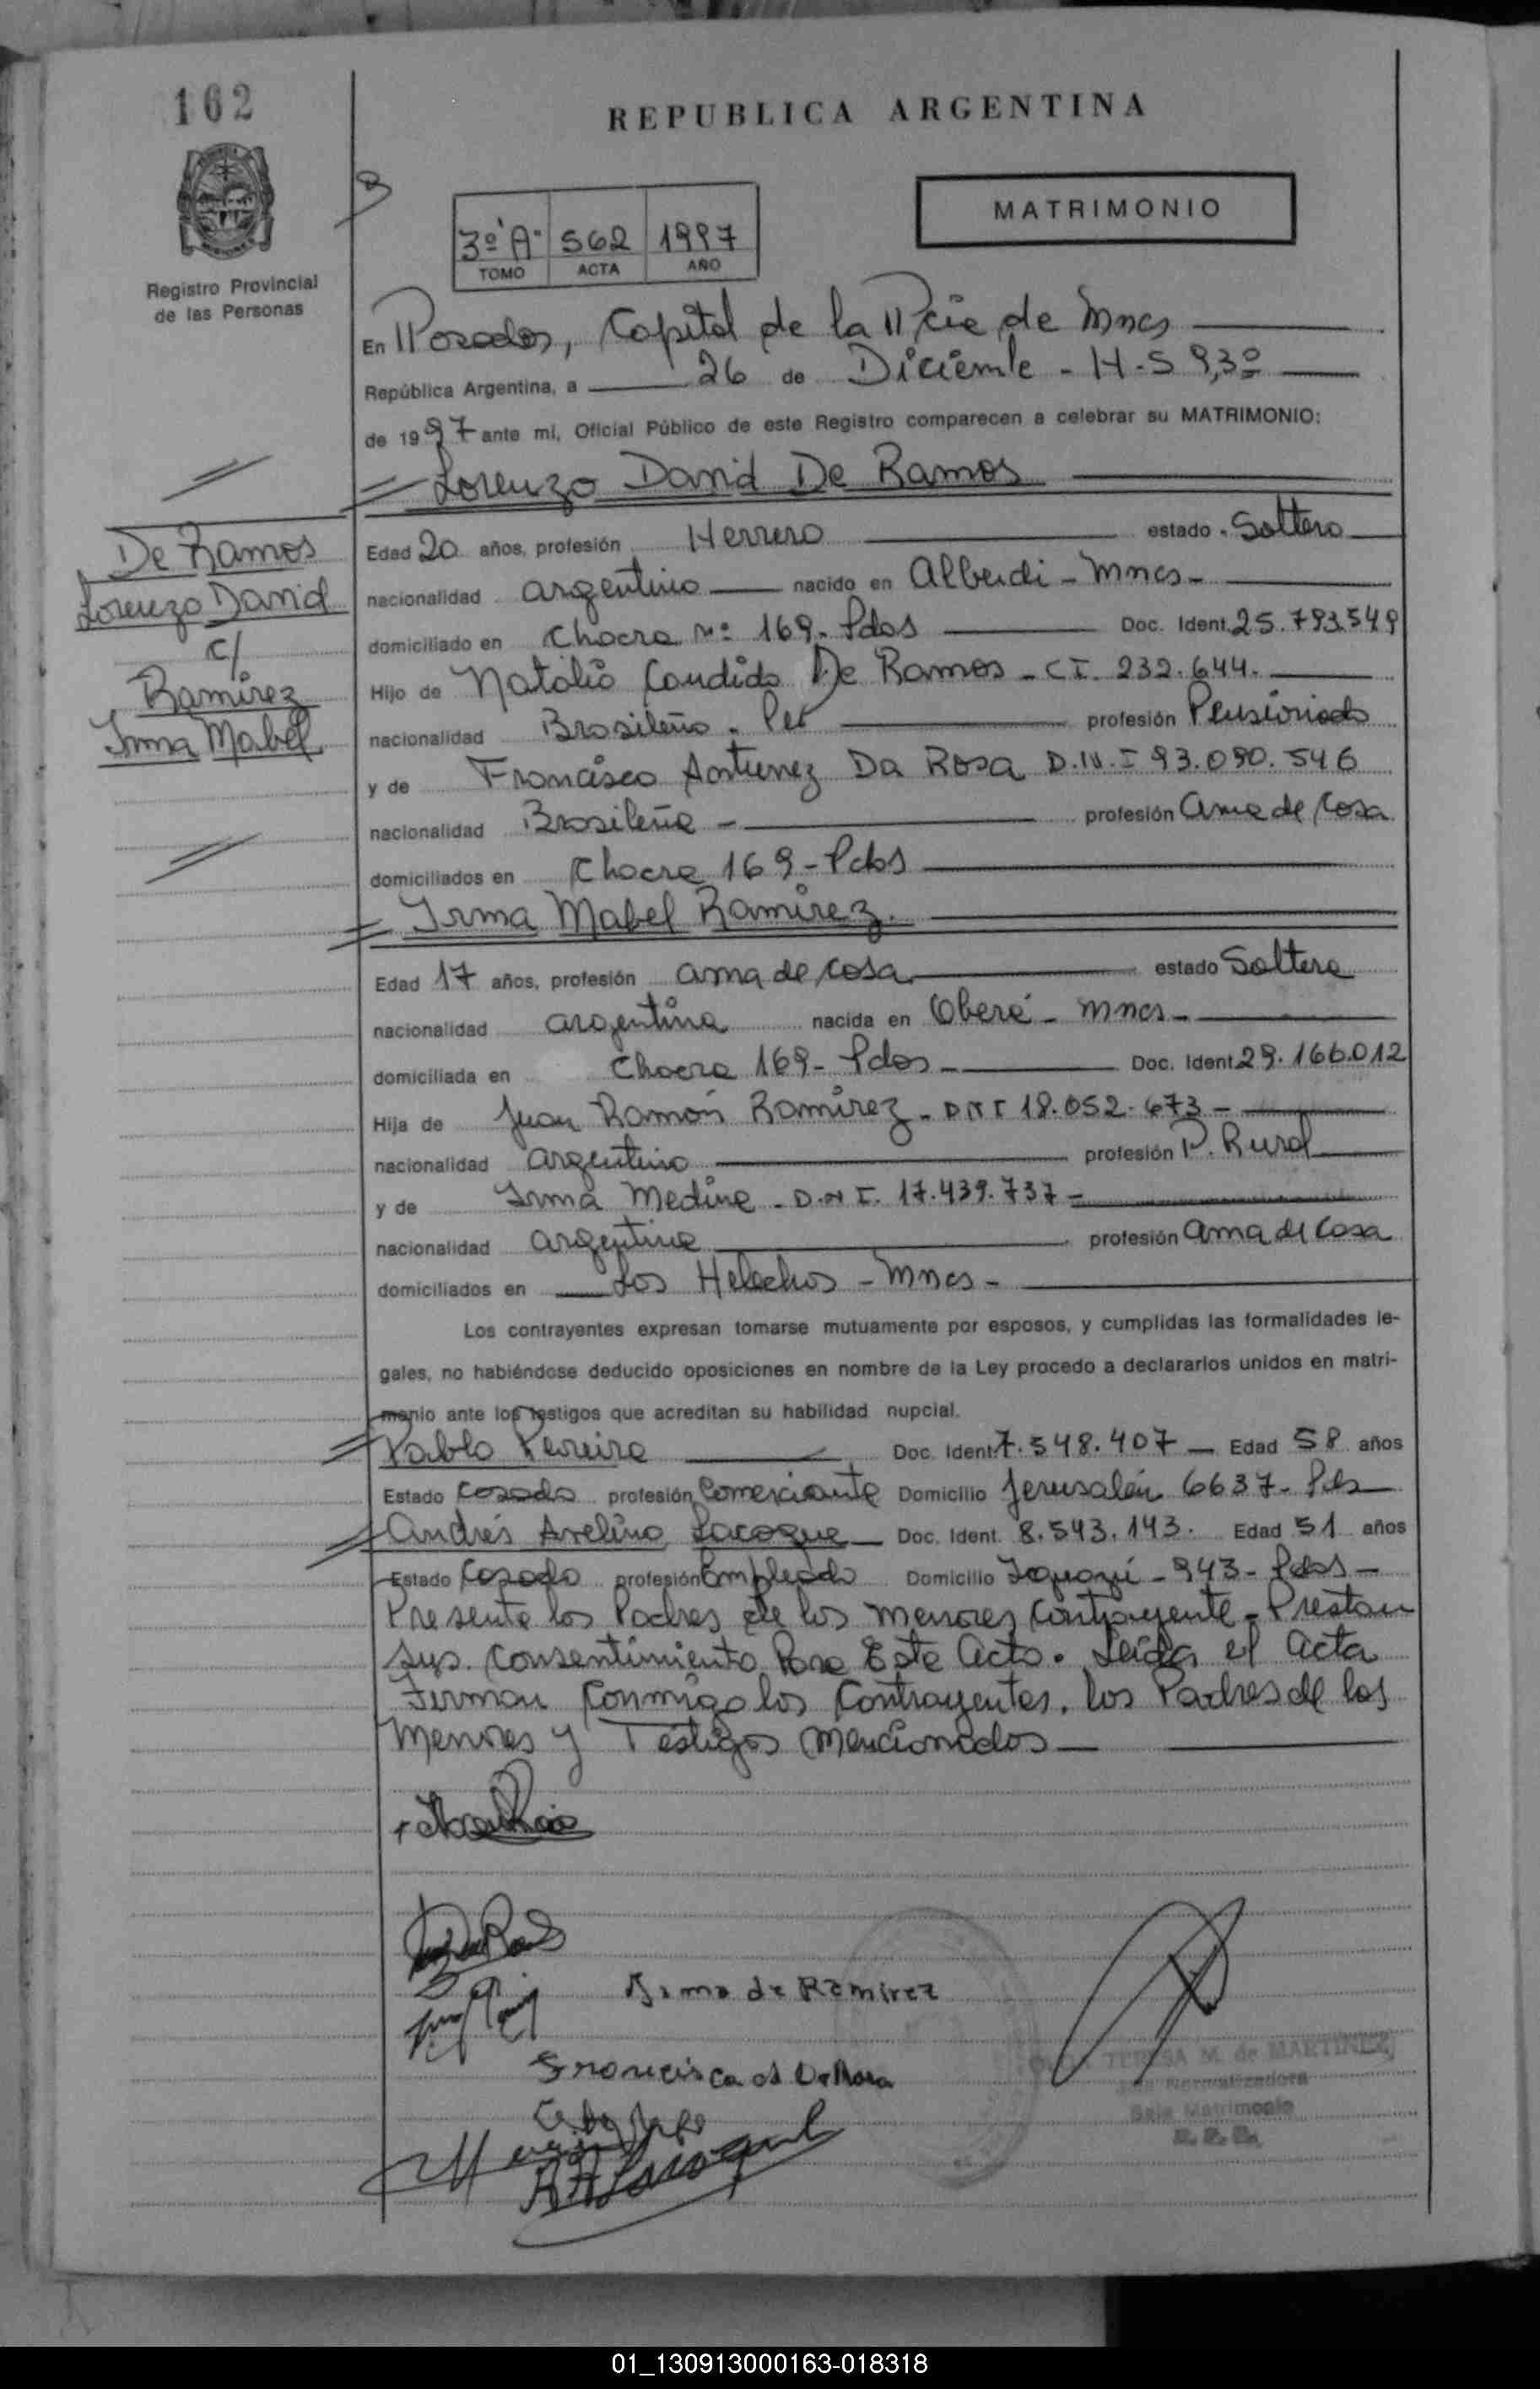 162
REPUBLICA ARGENTINA
MATRIMONIO
3º "A" 562 1997
TOMO ACTA AÑO
Registro Provincial
de las Personas
En Posadas, Capital de la Pcia de Mnes
República Argentina, a 26 de Diciembre - H-S 9,30
de 1997 ante mi, Oficial Público de este Registro comparecen a celebrar su MATRIMONIO:
Lorenzo David De Ramos
De Ramos
Lorenzo David
c/
Ramirez
Irma Mabel
Edad 20 años, profesión Herrero estado Soltero
nacionalidad argentino nacido en Alberdi - Mnes -
domiciliado en Chacra Nº 169. Pdas Doc. Ident. 25.793.549
Hijo de Natalio Candido De Ramos - CI. 232.644.
nacionalidad Brasileño. profesión Pensionado
y de Francisca Antunez Da Rosa D.N.I 93.090.546
nacionalidad Brasileña - profesión ama de Casa
domiciliados en Chacra 169 - Pdas
Irma Mabel Ramirez.
Edad 17 años, profesión ama de casa estado Soltera
nacionalidad argentina nacida en Oberá - Mnes -
domiciliada en Chacra 169 - Pdas - Doc. Ident. 29.166.012
Hija de Juan Ramón Ramirez - DNI 18.052.673 -
nacionalidad argentino profesión P. Rural
y de Irma Medina - D.N.I. 17.439.737 -
nacionalidad argentina profesión ama de Casa
domiciliados en Los Helechos - Mnes -
Los contrayentes expresan tomarse mutuamente por esposos, y cumplidas las formalidades le-
gales, no habiéndose deducido oposiciones en nombre de la Ley procedo a declararlos unidos en matri-
monio ante los testigos que acreditan su habilidad nupcial.
Pablo Pereira Doc. Ident. 7.548.407 - Edad 58 años
Estado Casado profesión Comerciante Domicilio Jerusalén 6637 - Pdas
Andrés Avelino Lacoque Doc. Ident. 8.543.143. Edad 51 años
Estado Casado profesión Empleado Domicilio - 943 - Pdas -
Presente los Padres de los menores Contrayente - Prestan
sus Consentimiento Para Este Acto. Leída el acta
Firman Conmigo los Contrayentes, los Padres de los
Menores y Testigos Mencionados
Irma de Ramirez
Francisca A Da Rosa
TERESA M. de MARTINEZ
Sala Matrimonio
01_130913000163-018318